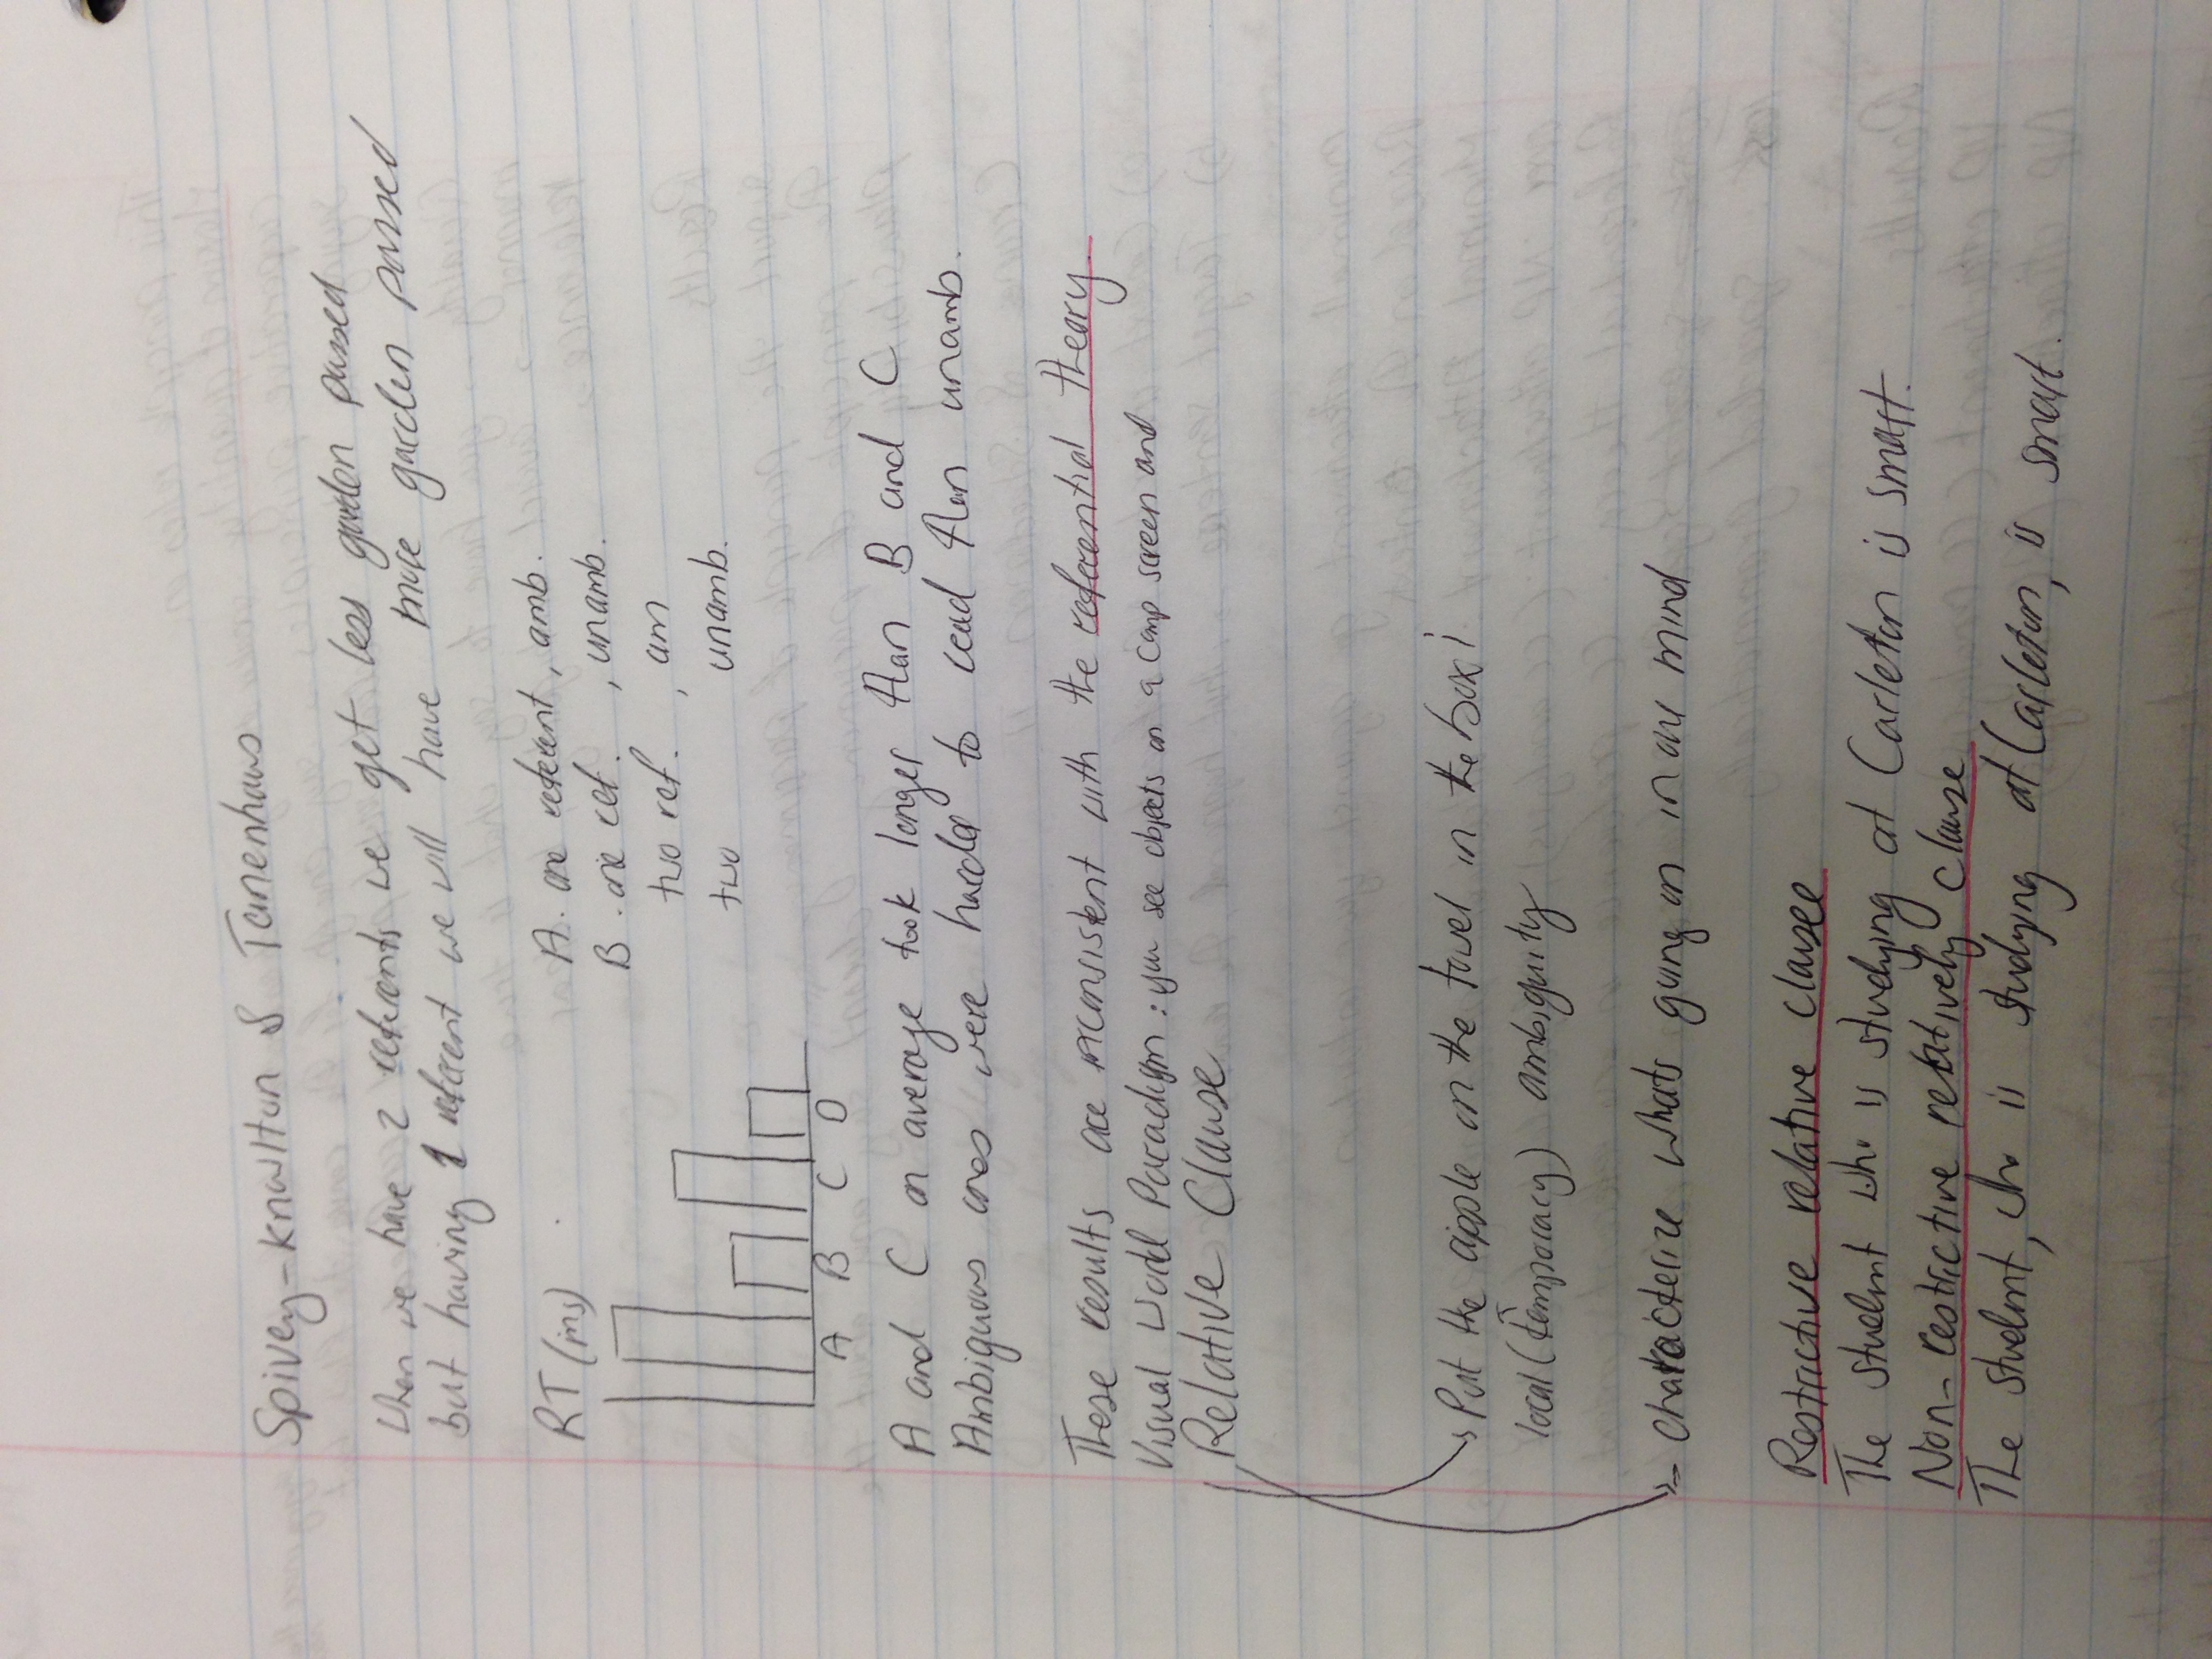 Spivey-Knowlton & Tanenhaus
When we have 2 referents we get less garden passed
but having 1 referent we will have more garden passed
RT (ms)
A. one referent, amb.
B. one ref. , unamb.
two ref. , am
two unamb.
A B C D
A and C on average took longer than B and C.
Ambiguous ones were harder to read than unamb.
These results are inconsistent with the referential theory
Visual World Paradigm: you see objects on a comp screen and
Relative Clause
Put the apple on the towel in the box!
local (temporacy) ambiguity
characterize whats going on in our mind
Restrictive relative clause
The student who is studying at Carleton is smart.
Non-restrictive relatively clause
The student, who is studying at Carleton, is smart.